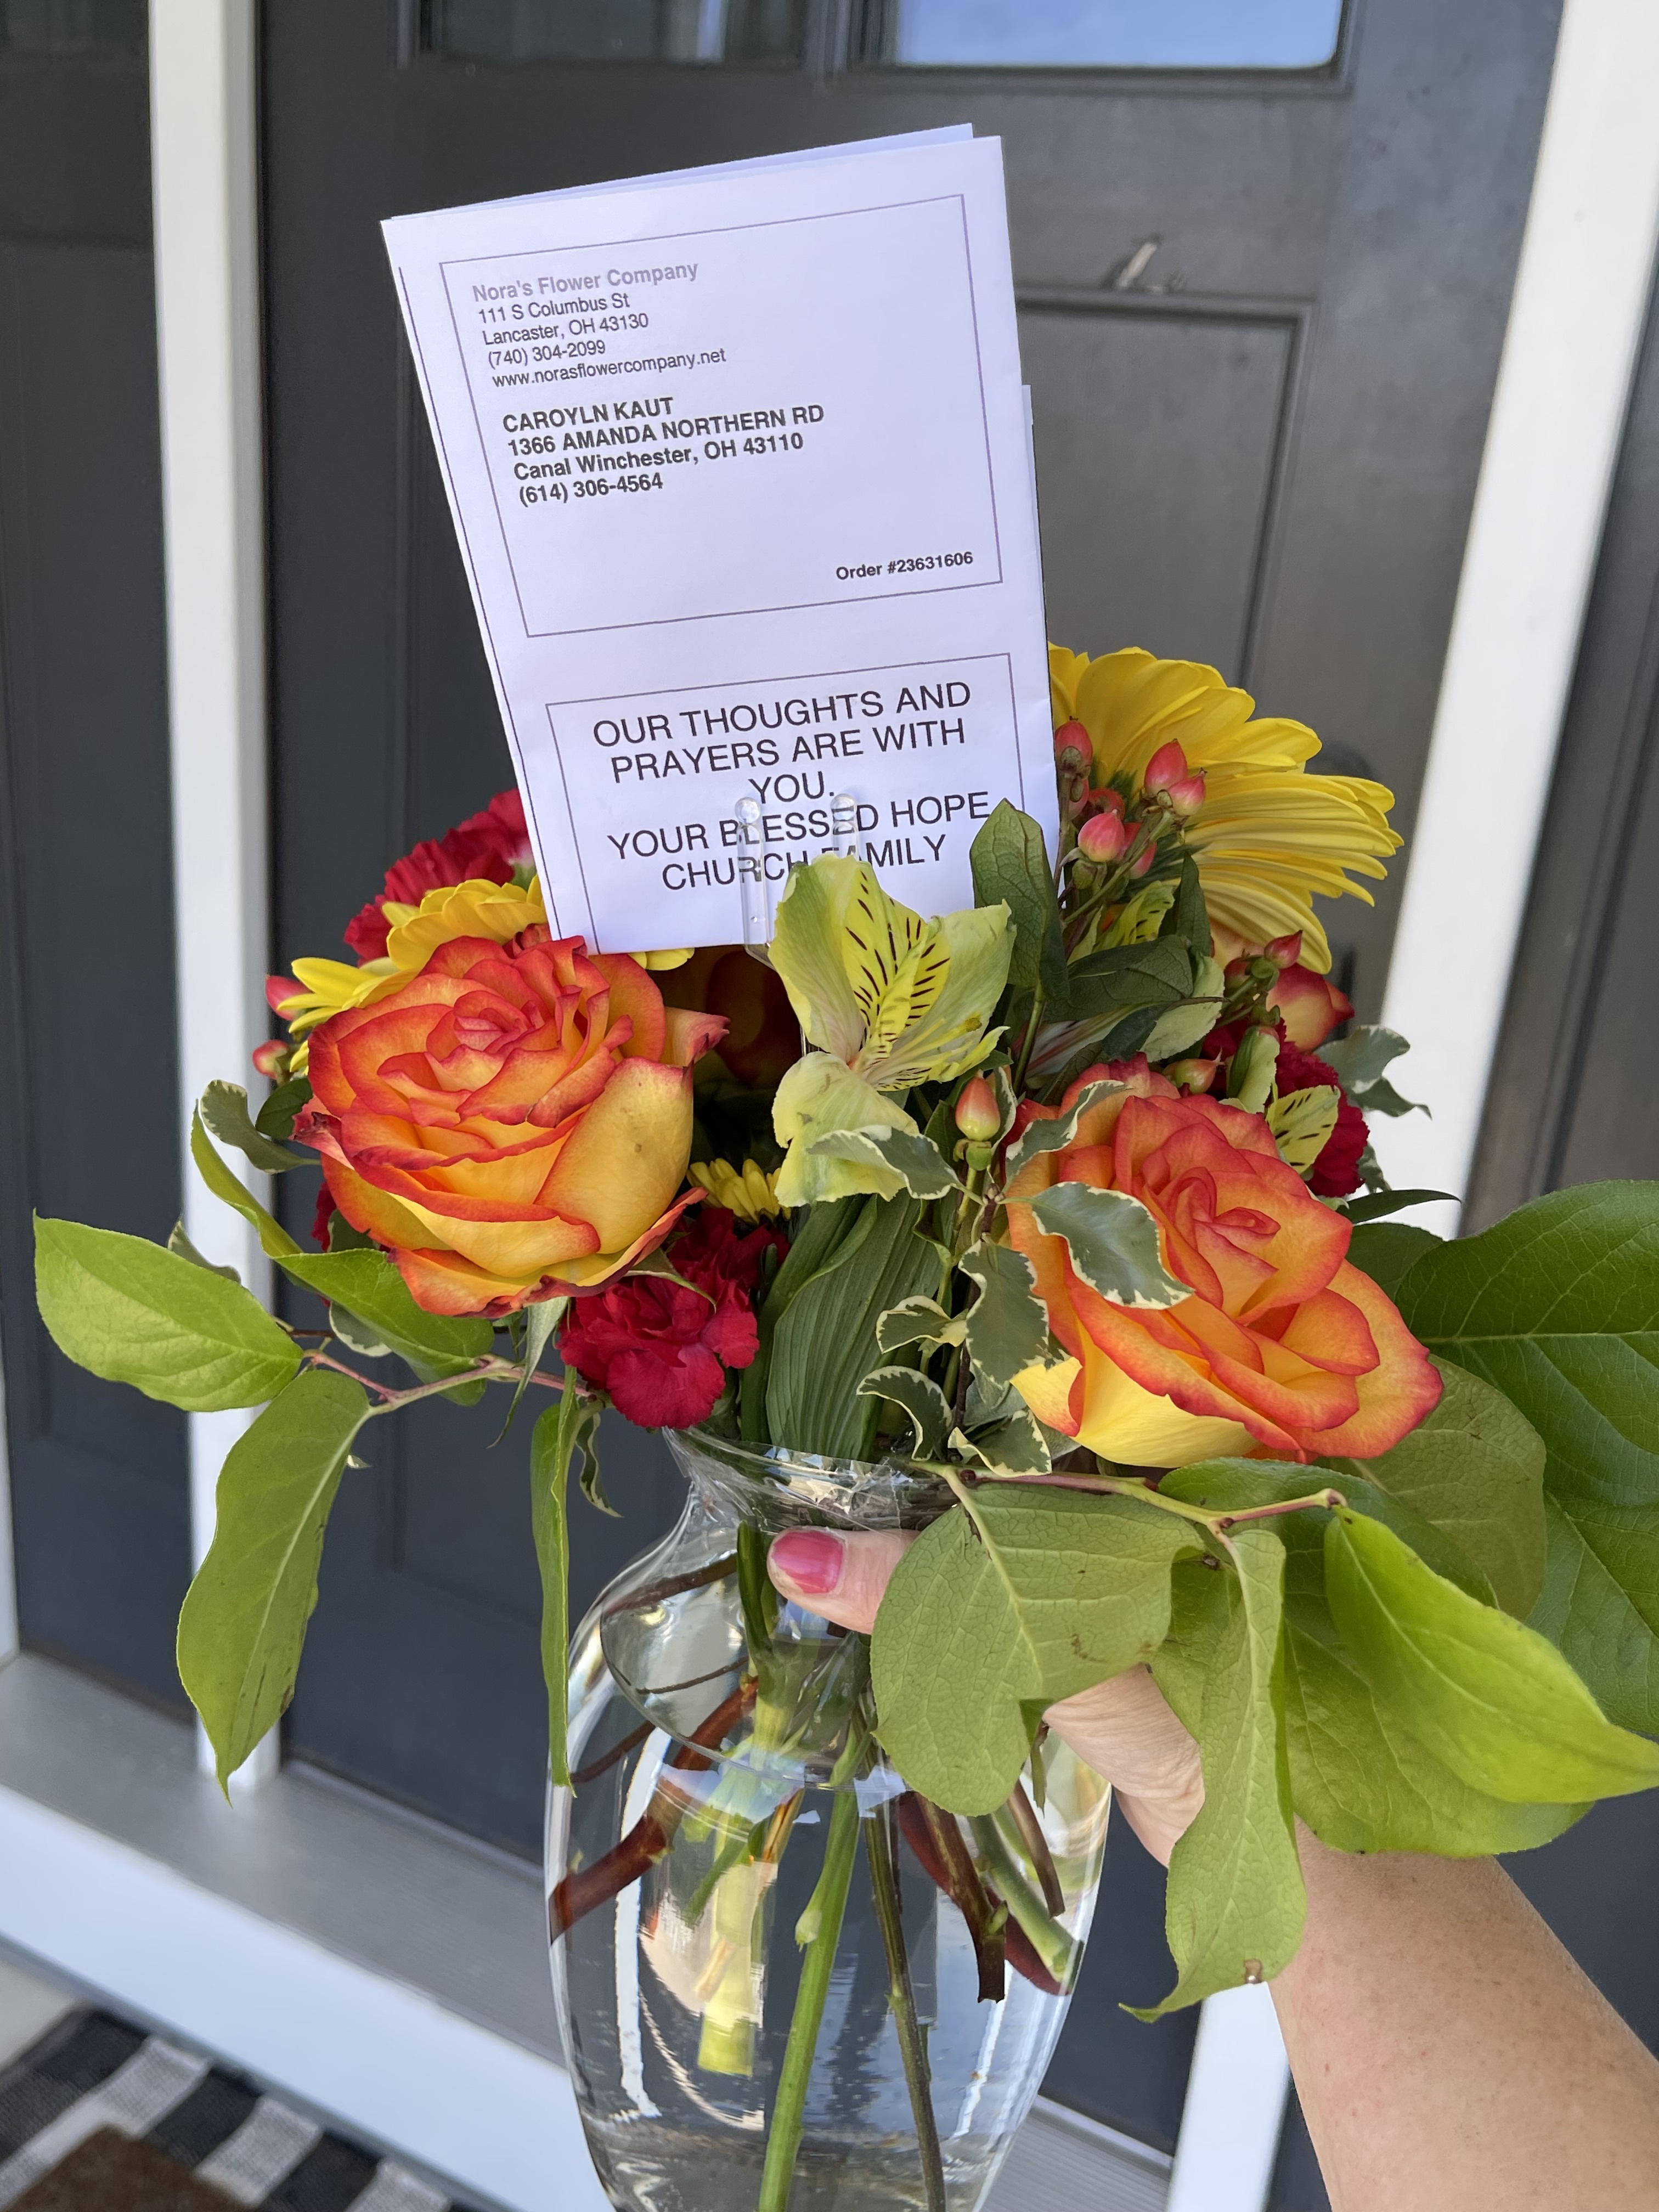 Nora's Flower Company
111 S Columbus St
Lancaster, OH 43130
(740) 304-2099
www.norasflowercompany.net
CAROYLN KAUT
1366 AMANDA NORTHERN RD
Canal Winchester, OH 43110
(614) 306-4564
Order #23631606
OUR THOUGHTS AND
PRAYERS ARE WITH
YOU.
YOUR BLESSED HOPE
CHURCH FAMILY